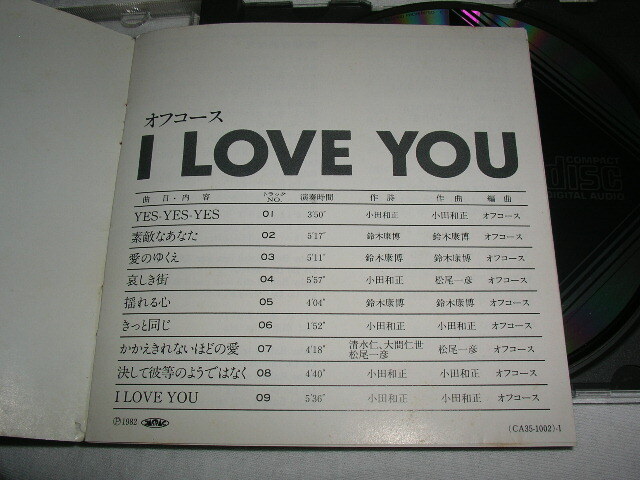 オフコース
I LOVE YOU
曲目・内容 トラックNO. 演奏時間 作詩 作曲 編曲
YES-YES-YES 01 3'50" 小田和正 小田和正 オフコース
素敵なあなた 02 5'17" 鈴木康博 鈴木康博 オフコース
愛のゆくえ 03 5'11" 鈴木康博 鈴木康博 オフコース
哀しき街 04 5'57" 小田和正 松尾一彦 オフコース
揺れる心 05 4'04" 鈴木康博 鈴木康博 オフコース
きっと同じ 06 1'52" 小田和正 小田和正 オフコース
かかえきれないほどの愛 07 4'18" 清水仁、大間仁世 松尾一彦 松尾一彦 オフコース
決して彼等のようではなく 08 4'40" 小田和正 小田和正 オフコース
I LOVE YOU 09 5'36" 小田和正 小田和正 オフコース
Ⓟ1982 (CA35-1002)-1
COMPACT
disc
DIGITAL AUDIO